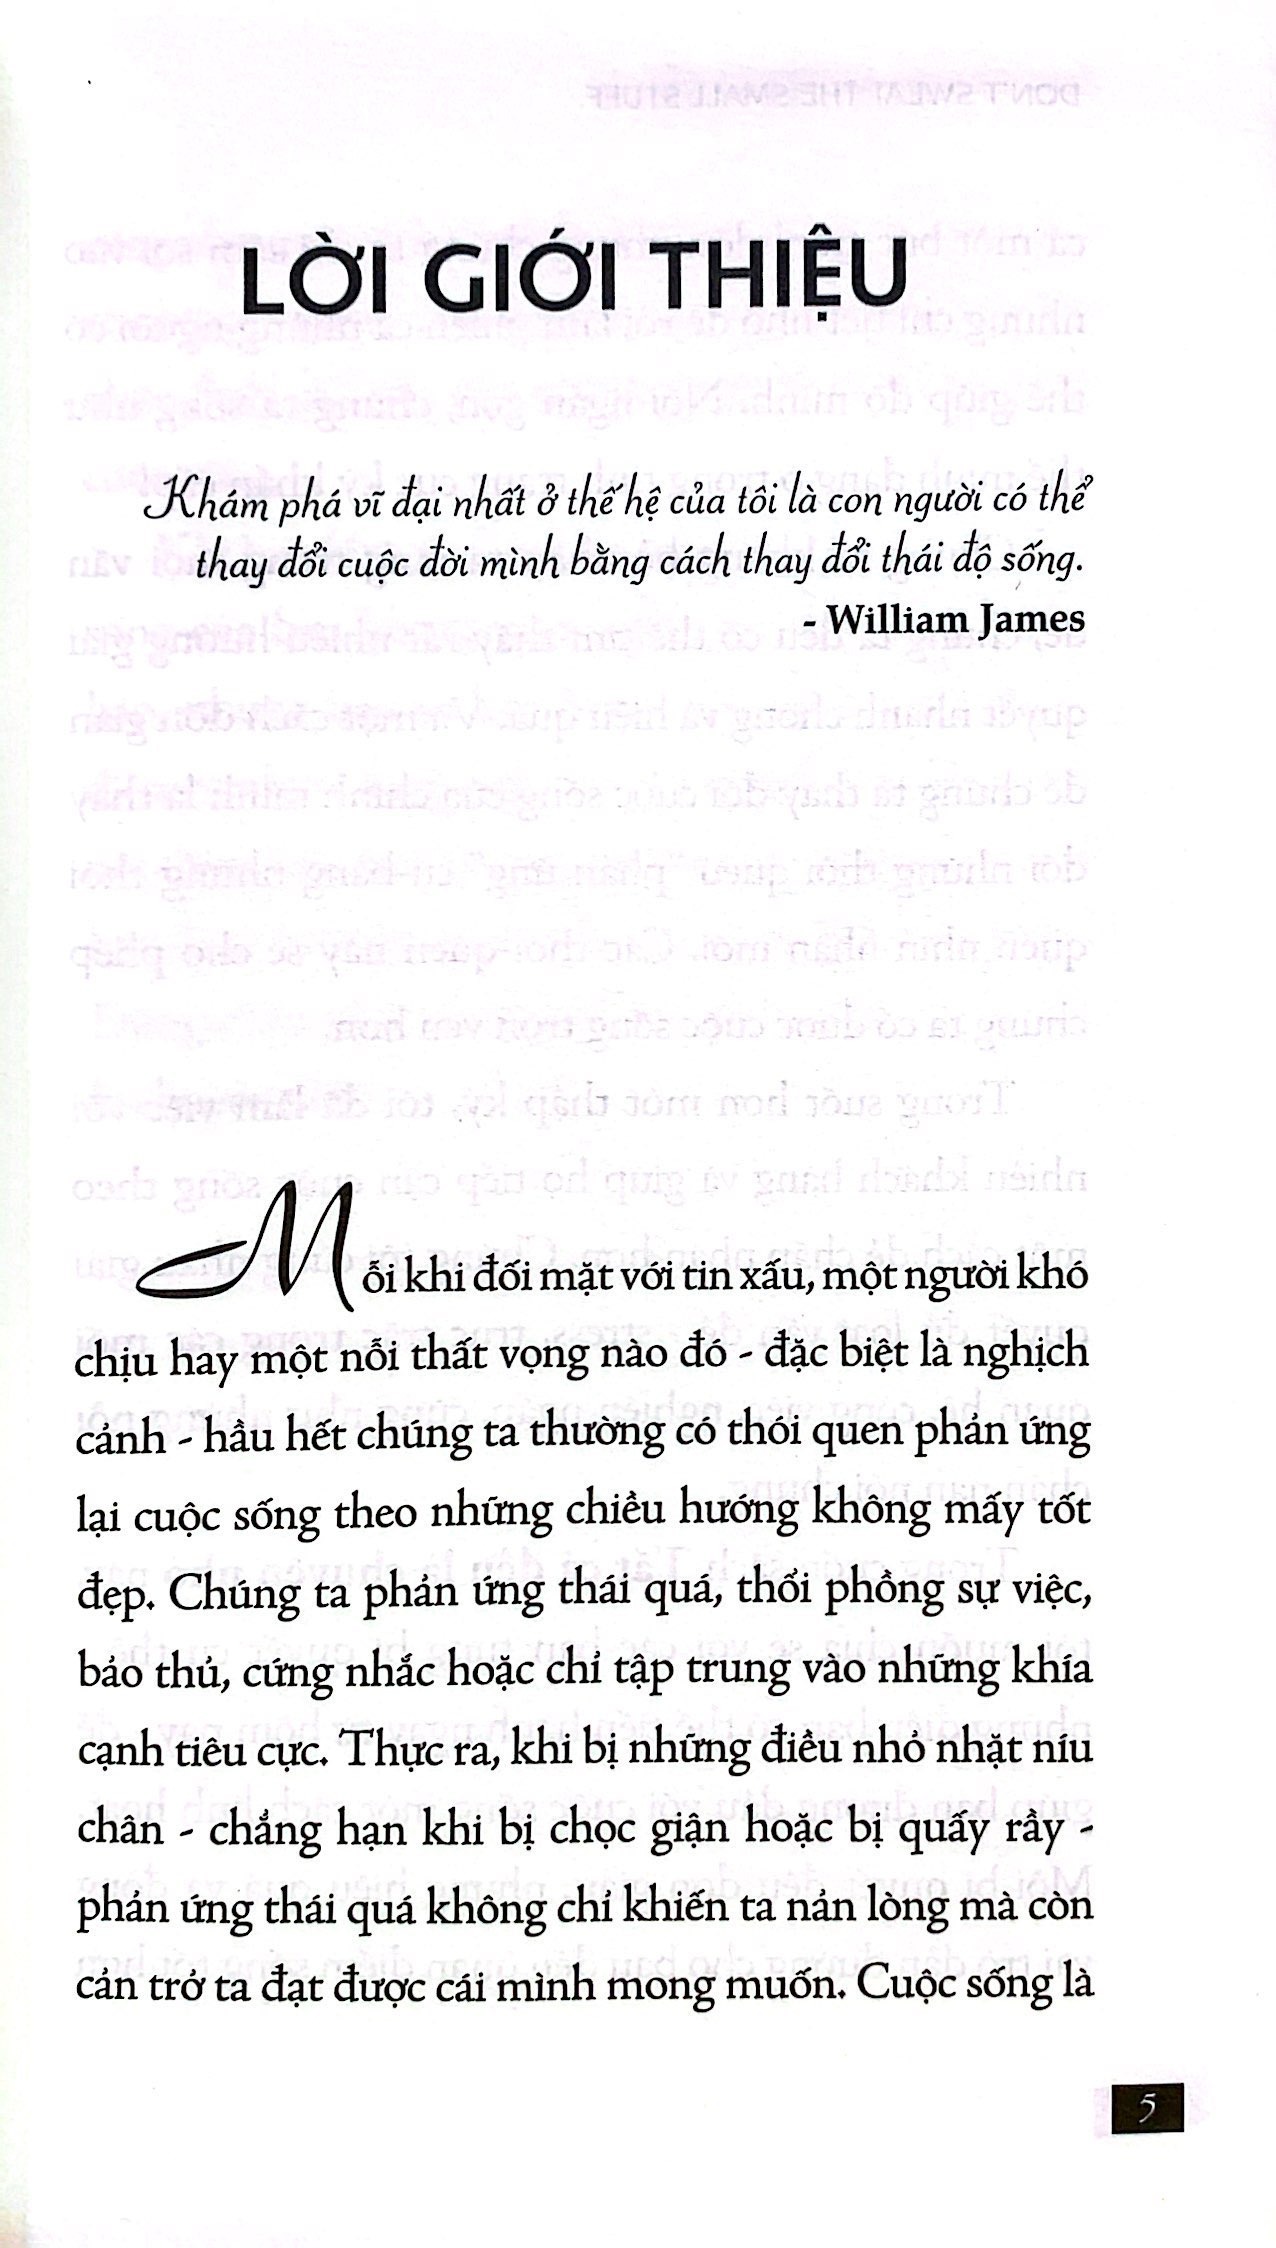 LỜI GIỚI THIỆU
Khám phá vĩ đại nhất ở thế hệ của tôi là con người có thể
thay đổi cuộc đời mình bằng cách thay đổi thái độ sống.
- William James
Mỗi khi đối mặt với tin xấu, một người khó
chịu hay một nỗi thất vọng nào đó - đặc biệt là nghịch
cảnh - hầu hết chúng ta thường có thói quen phản ứng
lại cuộc sống theo những chiều hướng không mấy tốt
đẹp. Chúng ta phản ứng thái quá, thổi phồng sự việc,
bảo thủ, cứng nhắc hoặc chỉ tập trung vào những khía
cạnh tiêu cực. Thực ra, khi bị những điều nhỏ nhặt níu
chân - chẳng hạn khi bị chọc giận hoặc bị quấy rầy -
phản ứng thái quá không chỉ khiến ta nản lòng mà còn
cản trở ta đạt được cái mình mong muốn. Cuộc sống là
5